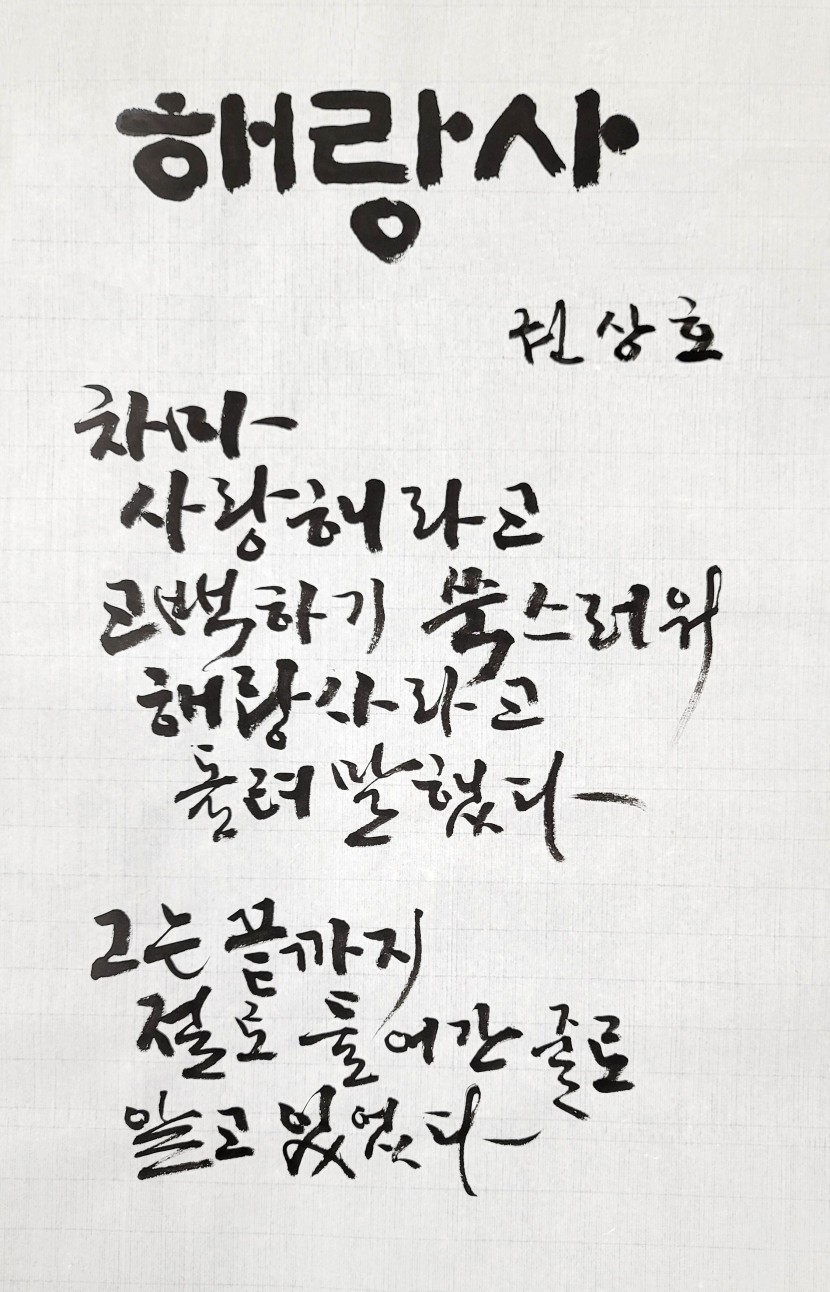 해랑사
권상호
차마
사랑해라고
고백하기 쑥스러워
해랑사라고
돌려 말했다
그는 끝까지
절로 들어간 줄로
알고 있었다